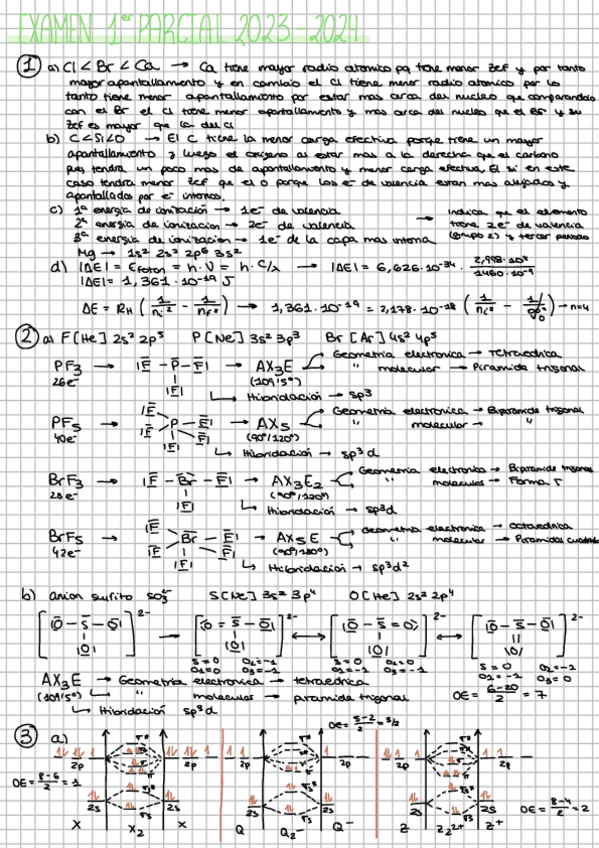 EXAMEN 1er PARCIAL 2023-2024
1 a) Cl < Br < Ca → Ca tiene mayor radio atomico pq tiene menor Zef y por tanto
mayor apantallamiento y en cambio el Cl tiene menor radio atomico por lo
tanto tiene menor apantallamiento por estar mas cerca del nucleo que comparandolo
con el Br el Cl tiene menor apantallamiento y mas cerca del nucleo que el Br y su
Zef es mayor que la del Cl
b) C<Si<O → El C tiene la menor carga efectiva porque tiene un mayor
apantallamiento y luego el oxigeno al estar mas a la derecha que el carbono
pues tendra un poco mas de apantallamiento y menor carga efectiva. El Si en este
caso tendra menor Zef que el O porque los e⁻ de valencia estan mas alejados y
apantallados por e⁻ internos.
c) 1ª energia de ionización → 1e⁻ de valencia
2ª energia de ionizacion → 2e⁻ de valencia
3ª energia de ionizacion → 1e⁻ de la capa mas interna
→ indica que el elemento
tiene 2e⁻ de valencia
(grupo 2) y tercer periodo
Mg → 1s² 2s² 2p⁶ 3s²
d) |ΔE| = Efoton = h·ν = h·c/λ → |ΔE| = 6,626·10⁻³⁴ · 2,998·10⁸ / 1460·10⁻⁹
|ΔE| = 1,361·10⁻¹⁹ J
ΔE = RH (1/ni² - 1/nf²) → 1,361·10⁻¹⁹ = 2,178·10⁻¹⁸ (1/ni² - 1/∞²) → n=4
2 a) F [He] 2s² 2p⁵ P [Ne] 3s² 3p³ Br [Ar] 4s² 4p⁵
PF₃ → F - P - F → AX₃E Geometria electronica → Tetraedrica
26e⁻ F (109,5°) " molecular → Piramide trigonal
Hibridación → sp³
PF₅ → F F P F F F → AX₅ Geometria electronica → Bipiramide trigonal
40e⁻ (90°/120°) " molecular → "
Hibridación → sp³d
BrF₃ → F - Br - F → AX₃E₂ Geometria electronica → Bipiramide trigonal
28e⁻ F (90°/120°) " molecular → Forma T
Hibridacion → sp³d
BrF₅ → F F Br F F F → AX₅E Geometria electronica → octaedrica
42e⁻ (90°/180°) " molecular → Piramidal cuadrada
Hibridación → sp³d²
b) anion sulfito SO₃²⁻ S [Ne] 3s² 3p⁴ O [He] 2s² 2p⁴
[O - S - O O]²⁻ → [O = S - O O]²⁻ ↔ [O - S = O O]²⁻ ↔ [O - S - O O]²⁻
S=0 O₂=-1 S=0 O₂=0 S=0 O₂=-1
O₁=0 O₃=-1 O₁=-1 O₃=-1 O₁=-1 O₃=0
AX₃E → Geometria electronica → tetraedrica
OE = 6-20/2 = 7
(109,5°) " molecular → piramide trigonal
Hibridación sp³d
3 a)
OE = 5-2/2 = 3/2
2p 2p 2p 2p 2p 2p
OE = 8-6/2 = 1
2s 2s 2s 2s 2s 2s
OE = 8-4/2 = 2
X X₂ X Q Q₂⁻ Q⁻ Z Z₂²⁺ Z⁺